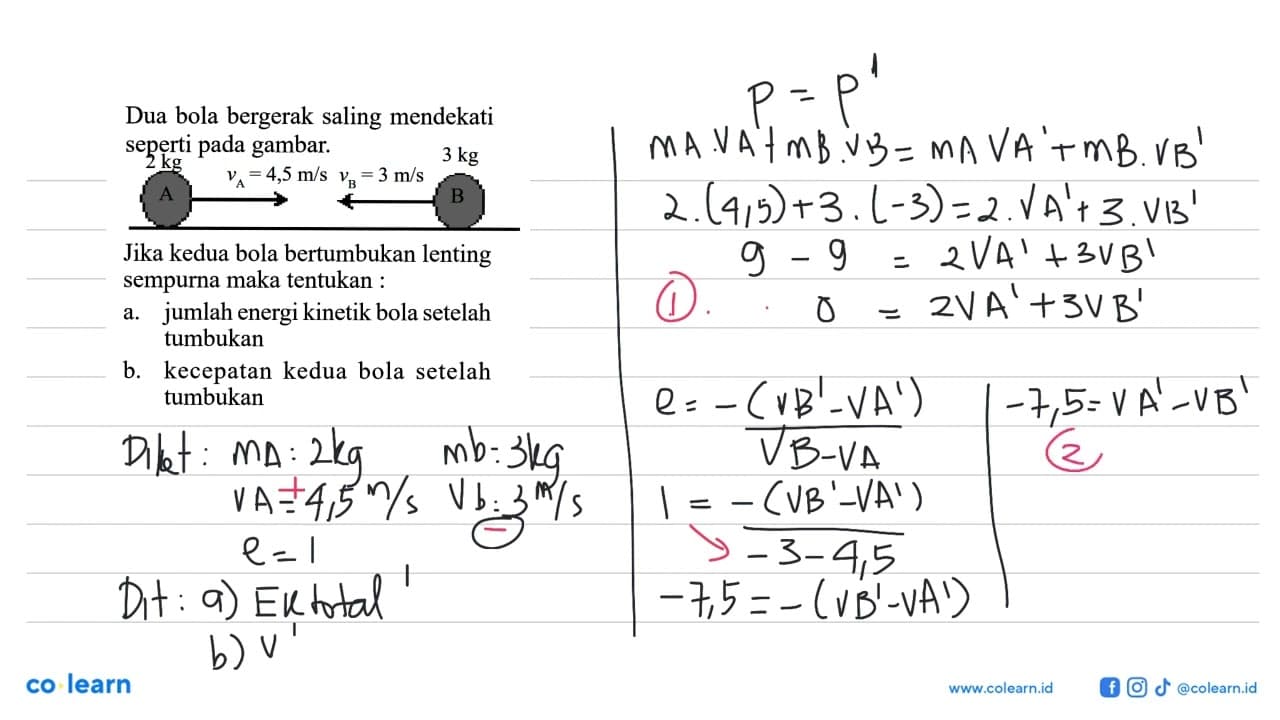 Dua bola bergerak saling mendekati
seperti pada gambar.
2 kg
3 kg
v_A = 4,5 m/s v_B = 3 m/s
A
B
Jika kedua bola bertumbukan lenting
sempurna maka tentukan :
a. jumlah energi kinetik bola setelah
tumbukan
b. kecepatan kedua bola setelah
tumbukan
Diket : mA : 2kg mb : 3kg
VA = + 4,5 m/s Vb : 3 m/s
−
e = 1
Dit : a) EK total '
b) v'
P = P'
mA . VA + mB . VB = mA VA' + mB . VB'
2 . (4,5) + 3 . (-3) = 2 . VA' + 3 . VB'
9 - 9 = 2VA' + 3VB'
1 . 0 = 2VA' + 3VB'
e = -(VB' - VA')
VB - VA
1 = -(VB' - VA')
-3 - 4,5
-7,5 = -(VB' - VA')
-7,5 = VA' - VB'
2
co learn
www.colearn.id
@colearn.id